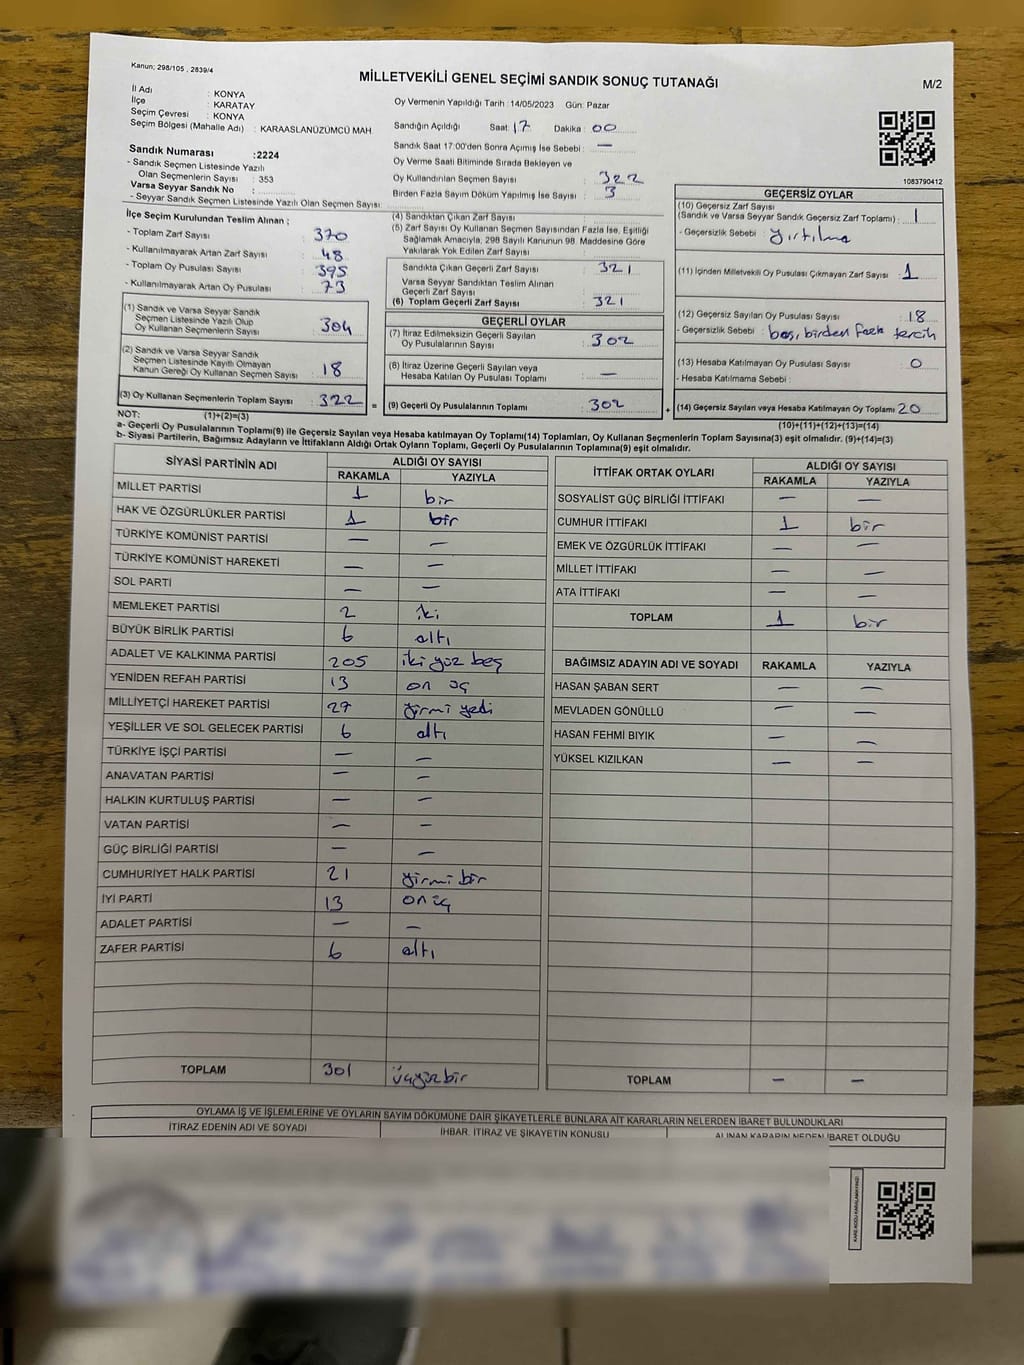 Kanun; 298/105 , 2839/4
MİLLETVEKİLİ GENEL SEÇİMİ SANDIK SONUÇ TUTANAĞI
M/2
İl Adı : KONYA
İlçe : KARATAY
Seçim Çevresi : KONYA
Seçim Bölgesi (Mahalle Adı) : KARAASLANÜZÜMCÜ MAH.
Sandık Numarası : 2224
- Sandık Seçmen Listesinde Yazılı
Olan Seçmenlerin Sayısı : 353
Varsa Seyyar Sandık No :
- Seyyar Sandık Seçmen Listesinde Yazılı Olan Seçmen Sayısı:
Oy Vermenin Yapıldığı Tarih : 14/05/2023 Gün: Pazar
Sandığın Açıldığı Saat: 17 Dakika : 00
Sandık Saat 17:00'den Sonra Açımış İse Sebebi : —
Oy Verme Saati Bitiminde Sırada Bekleyen ve
Oy Kullandırılan Seçmen Sayısı : 322
Birden Fazla Sayım Döküm Yapılmış İse Sayısı : 3
1083790412
İlçe Seçim Kurulundan Teslim Alınan ;
- Toplam Zarf Sayısı : 370
- Kullanılmayarak Artan Zarf Sayısı : 48
- Toplam Oy Pusulası Sayısı : 395
- Kullanılmayarak Artan Oy Pusulası : 73
(1) Sandık ve Varsa Seyyar Sandık
Seçmen Listesinde Yazılı Olup
Oy Kullanan Seçmenlerin Sayısı : 304
(2) Sandık ve Varsa Seyyar Sandık
Seçmen Listesinde Kayıtlı Olmayan
Kanun Gereği Oy Kullanan Seçmen Sayısı : 18
(3) Oy Kullanan Seçmenlerin Toplam Sayısı : 322 =
(4) Sandıktan Çıkan Zarf Sayısı :
(5) Zarf Sayısı Oy Kullanan Seçmen Sayısından Fazla İse, Eşitliği
Sağlamak Amacıyla, 298 Sayılı Kanunun 98. Maddesine Göre
Yakılarak Yok Edilen Zarf Sayısı :
Sandıkta Çıkan Geçerli Zarf Sayısı : 321
Varsa Seyyar Sandıktan Teslim Alınan
Geçerli Zarf Sayısı :
(6) Toplam Geçerli Zarf Sayısı : 321
GEÇERLİ OYLAR
(7) İtiraz Edilmeksizin Geçerli Sayılan
Oy Pusulalarının Sayısı : 302
(8) İtiraz Üzerine Geçerli Sayılan veya
Hesaba Katılan Oy Pusulası Toplamı : —
(9) Geçerli Oy Pusulalarının Toplamı : 302 +
GEÇERSİZ OYLAR
(10) Geçersiz Zarf Sayısı
(Sandık ve Varsa Seyyar Sandık Geçersiz Zarf Toplamı) : 1
- Geçersizlik Sebebi : yırtılma
(11) İçinden Milletvekili Oy Pusulası Çıkmayan Zarf Sayısı : 1
(12) Geçersiz Sayılan Oy Pusulası Sayısı : 18
- Geçersizlik Sebebi : boş, birden fazla tercih
(13) Hesaba Katılmayan Oy Pusulası Sayısı : 0
- Hesaba Katılmama Sebebi :
(14) Geçersiz Sayılan veya Hesaba Katılmayan Oy Toplamı : 20
NOT: (1)+(2)=(3)
(10)+(11)+(12)+(13)=(14)
a- Geçerli Oy Pusulaları Toplamı(9) ile Geçersiz Sayılan veya Hesaba katılmayan Oy Toplamı(14) Toplamları, Oy Kullanan Seçmenlerin Toplam Sayısına(3) eşit olmalıdır. (9)+(14)=(3)
b- Siyasi Partilerin, Bağımsız Adayların ve İttifakların Aldığı Ortak Oyların Toplamı, Geçerli Oy Pusulalarının Toplamına(9) eşit olmalıdır.
SİYASİ PARTİNİN ADI ALDIĞI OY SAYISI
RAKAMLA YAZIYLA
MİLLET PARTİSİ 1 bir
HAK VE ÖZGÜRLÜKLER PARTİSİ 1 bir
TÜRKİYE KOMÜNİST PARTİSİ — —
TÜRKİYE KOMÜNİST HAREKETİ — —
SOL PARTİ — —
MEMLEKET PARTİSİ 2 iki
BÜYÜK BİRLİK PARTİSİ 6 altı
ADALET VE KALKINMA PARTİSİ 205 iki yüz beş
YENİDEN REFAH PARTİSİ 13 on üç
MİLLİYETÇİ HAREKET PARTİSİ 27 yirmi yedi
YEŞİLLER VE SOL GELECEK PARTİSİ 6 altı
TÜRKİYE İŞÇİ PARTİSİ — —
ANAVATAN PARTİSİ — —
HALKIN KURTULUŞ PARTİSİ — —
VATAN PARTİSİ — —
GÜÇ BİRLİĞİ PARTİSİ — —
CUMHURİYET HALK PARTİSİ 21 yirmi bir
İYİ PARTİ 13 on üç
ADALET PARTİSİ — —
ZAFER PARTİSİ 6 altı
TOPLAM 301 üçyüzbir
İTTİFAK ORTAK OYLARI ALDIĞI OY SAYISI
RAKAMLA YAZIYLA
SOSYALİST GÜÇ BİRLİĞİ İTTİFAKI — —
CUMHUR İTTİFAKI 1 bir
EMEK VE ÖZGÜRLÜK İTTİFAKI — —
MİLLET İTTİFAKI — —
ATA İTTİFAKI — —
TOPLAM 1 bir
BAĞIMSIZ ADAYIN ADI VE SOYADI RAKAMLA YAZIYLA
HASAN ŞABAN SERT — —
MEVLADEN GÖNÜLLÜ — —
HASAN FEHMİ BIYIK — —
YÜKSEL KIZILKAN — —
TOPLAM — —
OYLAMA İŞ VE İŞLEMLERİNE VE OYLARIN SAYIM DÖKÜMÜNE DAİR ŞİKAYETLERLE BUNLARA AİT KARARLARIN NELERDEN İBARET BULUNDUKLARI
İTİRAZ EDENİN ADI VE SOYADI İHBAR, İTİRAZ VE ŞİKAYETİN KONUSU ALINAN KARARIN NEDEN İBARET OLDUĞU